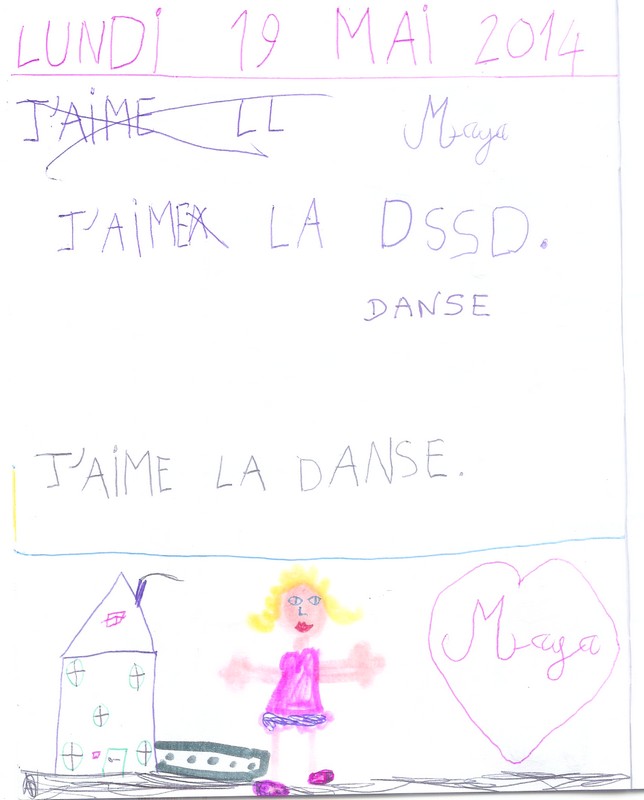 LUNDi 19 MAi 2014
J'AiME LL Maya
J'AiMEA LA DSSD.
DANSE
J'AiME LA DANSE.
Maya